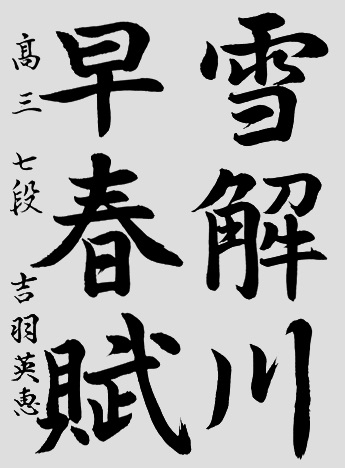 雪解川
早春賦
髙三 七段 吉羽英恵